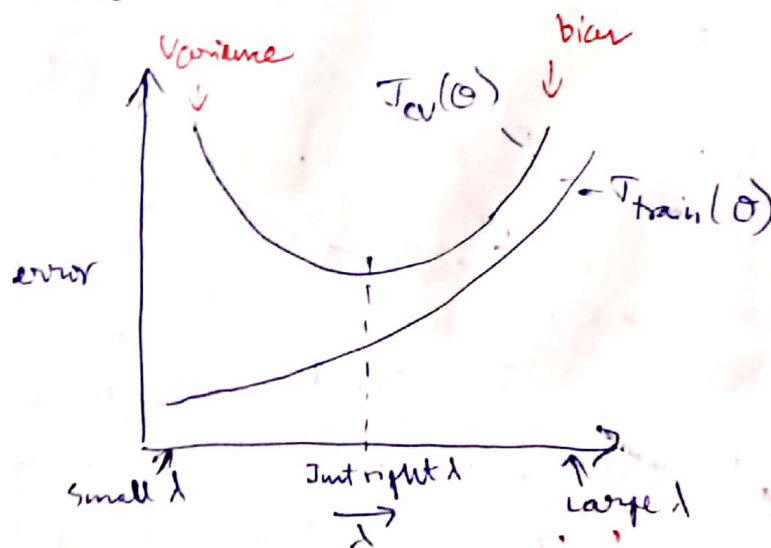 Variance
bias
J_cv(θ)
J_train(θ)
error
Small λ
Just right λ
Large λ
λ